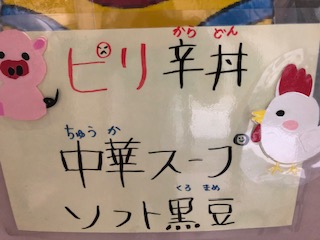 から どん
ピリ辛丼
ちゅう か
中華スープ
くろ まめ
ソフト黒豆